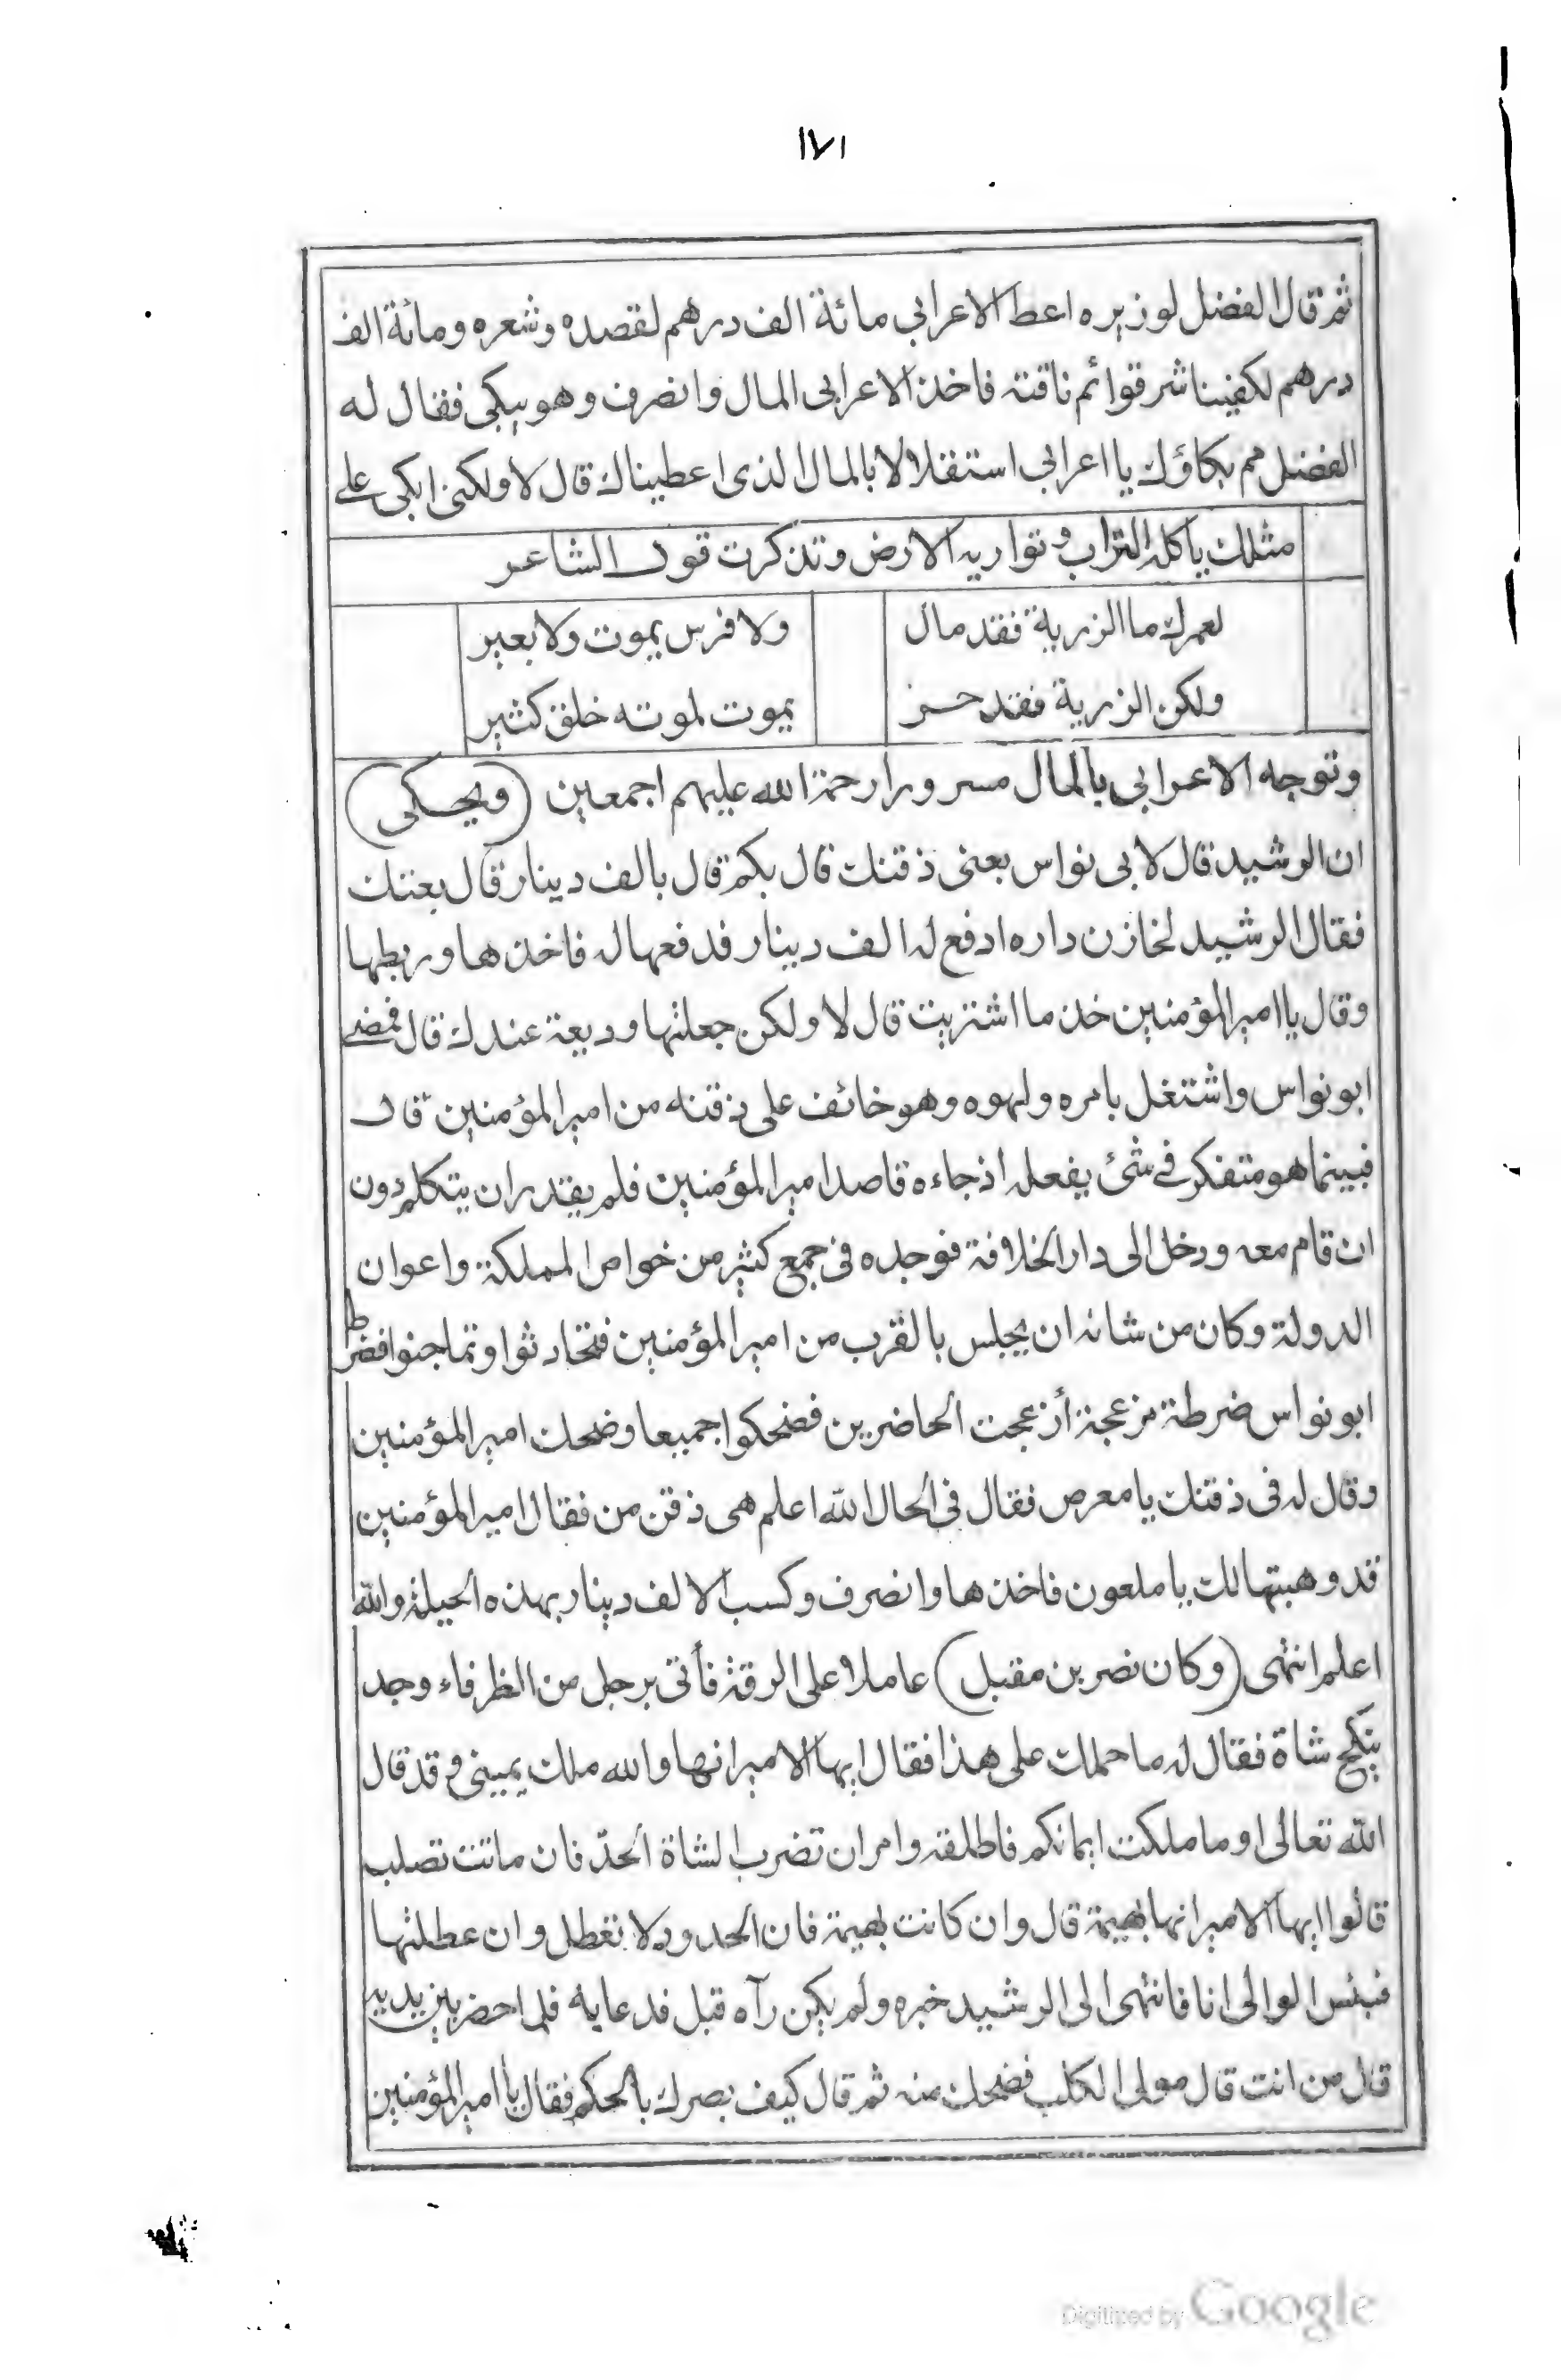 ١٧١
ثم قال الفضل لوزيره اعط الاعرابي مائة الف درهم لقصده وشعره ومائة الف
درهم لكفينا شر قوائم ناقته فاخذ الاعرابي المال وانصرف وهو يبكي فقال له
الفضل مم بكاؤك يا اعرابي استقلالا بالمال الذى اعطيناك قال لا ولكنى ابكى على
مثلك ياكله التراب وتواريه الارض وتذكرت قول الشاعر
لعمرك ما الزرية فقد مال ولا فرس يموت ولا بعير
ولكن الزرية فقد حر يموت لموته خلق كثير
وتوجه الاعرابي بالمال مسرورا رحمة الله عليهم اجمعين (ويحكى)
ان الرشيد قال لابى نواس بعنى ذقنك قال بكم قال بالف دينار قال بعتك
فقال الرشيد لخازن داره ادفع له الف دينار فدفعها له فاخذها وربطها
وقال يا امير المؤمنين خذ ما اشتريت قال لا ولكن جعلتها وديعة عندك قال فمضى
ابو نواس واشتغل بامره ولهوه وهو خائف على ذقنه من امير المؤمنين قال
فبينما هو متفكر فى شئ يفعله اذ جاءه قاصد امير المؤمنين فلم يقدر ان يتكلم دون
ان قام معه ودخل الى دار الخلافة فوجده فى جمع كثير من خواص المملكة واعوان
الدولة وكان من شانه ان يجلس بالقرب من امير المؤمنين فتحادثوا وتماجنوا فضرط
ابو نواس ضرطة مزعجة أزعجت الحاضرين فضحكوا جميعا وضحك امير المؤمنين
وقال له فى ذقنك يا معرص فقال فى الحال الله اعلم هى ذقن من فقال امير المؤمنين
قد وهبتها لك يا ملعون فاخذها وانصرف وكسب الالف دينار بهذه الحيلة والله
اعلم انتهى (وكان نصر بن مقبل) عاملا على الرقة فأتى برجل من الظرفاء وجد
ينكح شاة فقال له ما حملك على هذا فقال ايها الامير انها والله ملك يمينى وقد قال
الله تعالى او ما ملكت ايمانكم فاطلقه وامر ان تضرب الشاة الحدّ فان ماتت تصلب
قالوا ايها الامير انها بهيمة قال وان كانت بهيمة فان الحدود لا تعطل وان عطلتها
فبئس الوالى انا فانتهى الى الرشيد خبره ولم يكن رآه قبل فدعا به فلما حضر بين يديه
قال من انت قال مولى الكلب فضحك منه ثم قال كيف بصرك بالحكم فقال يا امير المؤمنين
Digitized by Google